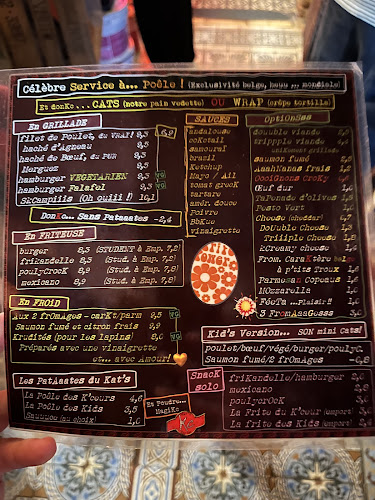 Célèbre Service à... Poêle ! (Exclusivité belge, heuu ... mondiale)
Et donKc... CATS (notre pain vedette) OU WRAP (crêpe tortilla)
En GRILLADE
filet de Poulet, du VRAI! 9,5
haché d'Agneau 9,5
haché de Bœuf, du PUR 9,5
Merguez 9,5
hamburger VEGETARIEN 9,5 VG
hamburger Falafel 9,5 VG
SkCampiiis (Oh ouiii !) 10,1
6,9
DonKc.. Sans Pataates -2,4
En FRITEUSE
burger 8,3 (STUDENT à Emp. 7,2)
friKandelle 8,3 (Stud. à Emp. 7,2)
poulycrocK 8,9 (Stud. à Emp. 7,8)
mexicano 8,9 (Stud. à Emp. 7,8)
En FROID
Aux 2 froMAges - carKt/parm 9,5 VG
Saumon fumé et citron frais 9,9
Krudités (pour les lapins) 8,6 VG
Préparés avec une vinaigrette
et... avec Amour!
Les Pataates du Kat's
La Poêle des K'oeurs 4,6
La Poêle des Kids 3,5
Sauuuce (au choix) 1,0
Et Poudre... MagiKc
SAUCES
andalouse
coKctail
samouraï
brazil
Ketchup
Mayo / Ail
tomat grecK
tartare
amér. douce
Poivre
BbKue
vinaigrette
OptionEsss
douuble viande
triiipple viande
saumon fumé
AaahKanas frais
OooiGnons CroKy
Œuf dur
TaPonade d'olives
Pesto Vert
Cheese (cheddar)
DoUuble Cheese
Triiiple Cheese
kCreamy cheese
From. CaraKtère belge
à p'tits Troux
Parmesan Copeaux
MOzzarella
FéoTa ...Plaisir !!
3 FromAaaGesss
Kid's Version... SON mini Cats!
poulet/bœuf/végé/burger/poulyc.
Saumon fumé/2 frOMAges -0,8
SnacK solo
friKandelle/hamburger
mexicano
poulycrocK
La Frite du K'œur (emport)
La frite des Kids (emport)